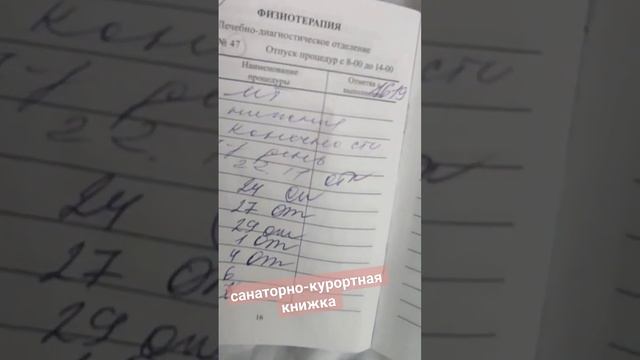 ФИЗИОТЕРАПИЯ
Лечебно-диагностическое отделение
№ 47
Отпуск процедур с 8-00 до 14-00
Наименование процедуры
Отметка о
нижния
конечности
1-7 день
22.11 от
24 от
27 от
29 от
1 от
4 от
6
16
санаторно-курортная
книжка